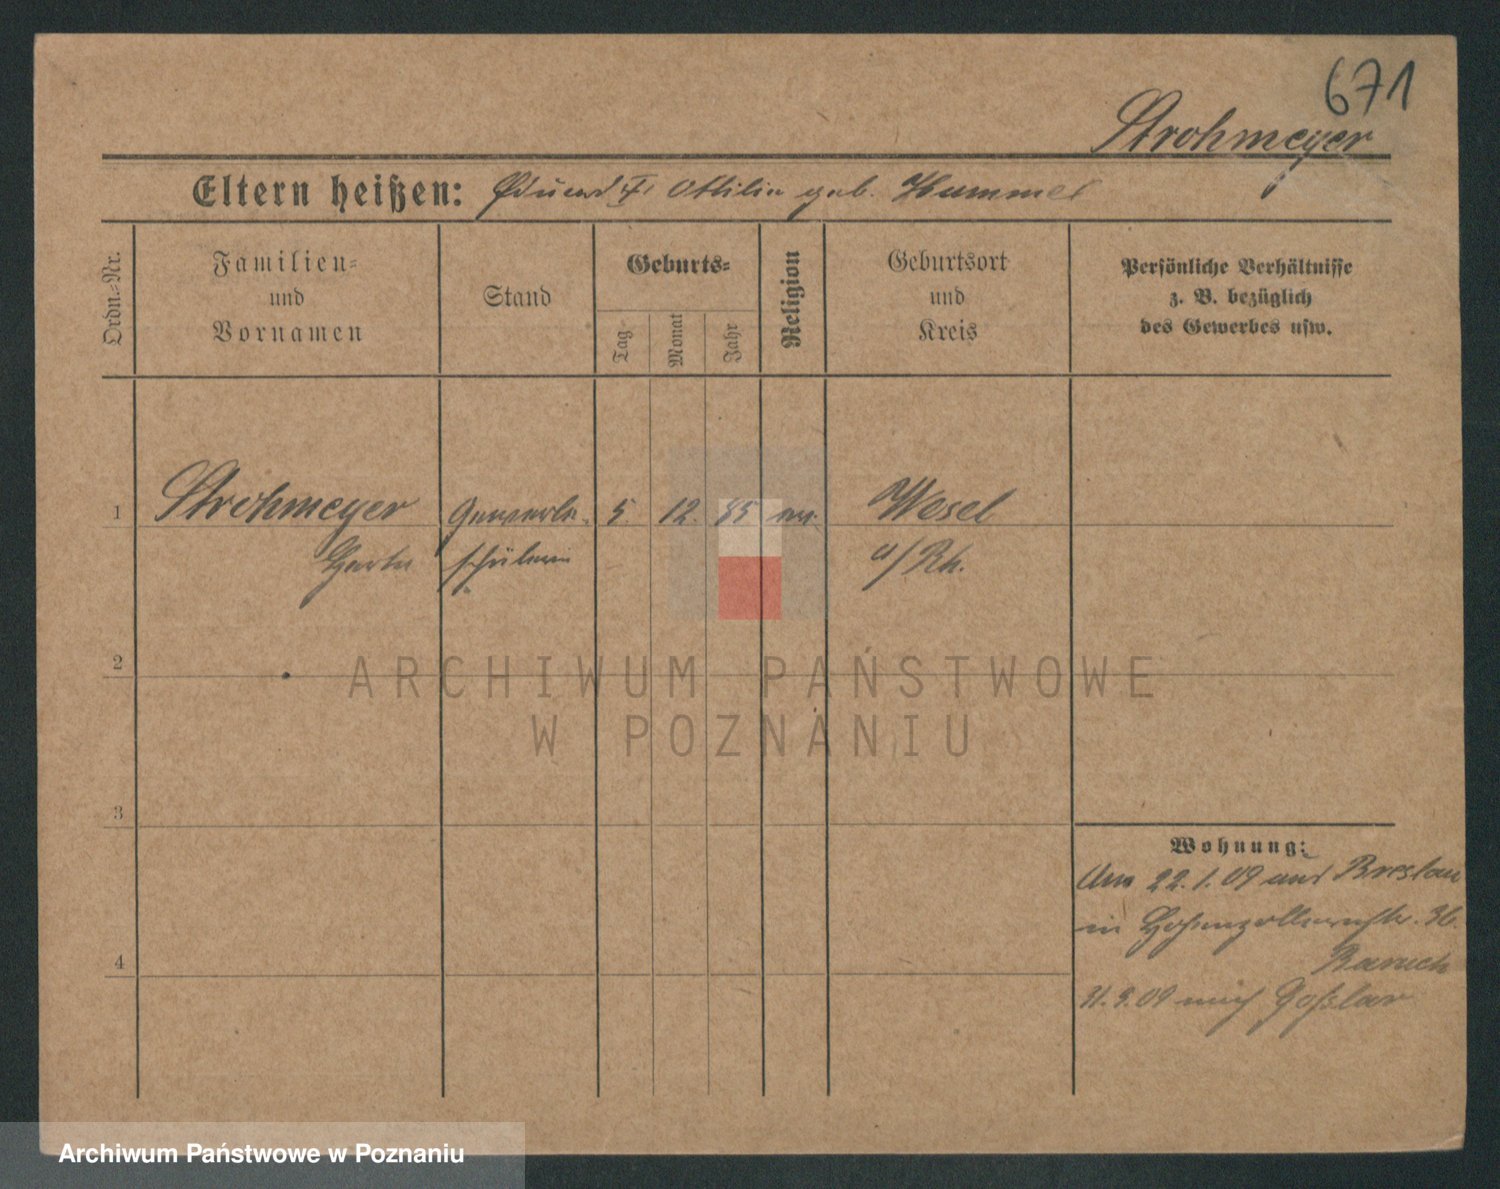 671
Strohmeyer
Eltern heißen: Eduard u. Ottilie geb. Hummel
Ordn.-Nr.
Familien-
und
Vornamen
Stand
Geburts-
Tag
Monat
Jahr
Religion
Geburtsort
und
Kreis
Persönliche Verhältnisse
z. B. bezüglich
des Gewerbes usw.
1 Strohmeyer Gewerbe- 5. 12. 85 ev. Wesel
schülerin a/Rh.
2
ARCHIWUM PAŃSTWOWE
W POZNANIU
3
4
Wohnung:
Am 22.1.09 aus Breslau
in Hohenzollernstr. 36.
Baruch
31.3.09 nach Goßlar
Archiwum Państwowe w Poznaniu